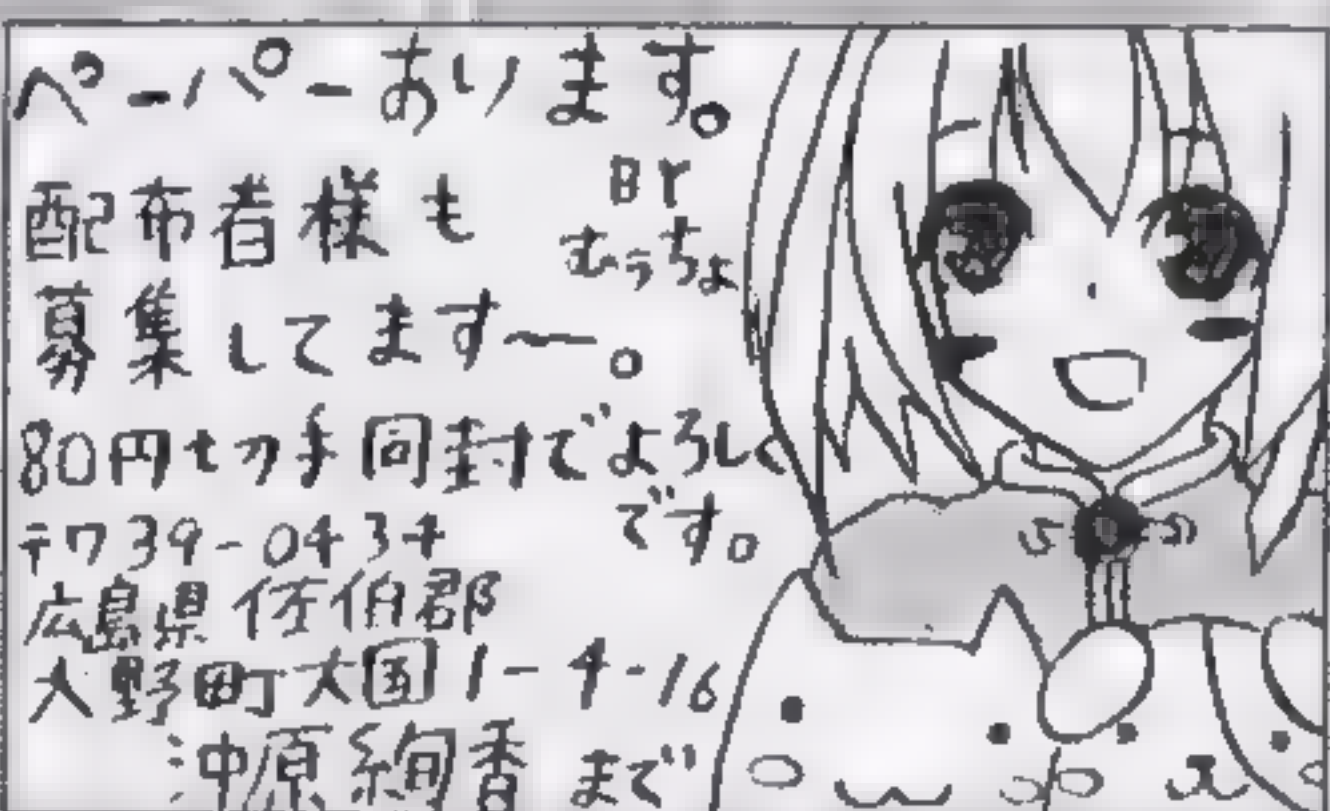 ペーパーあります。
BY
むぅちょ
配布者様も
募集してます〜。
80円切手同封でよろしく
です。
〒739-0434
広島県佐伯郡
大野町大国1-4-16
沖原絢香まで